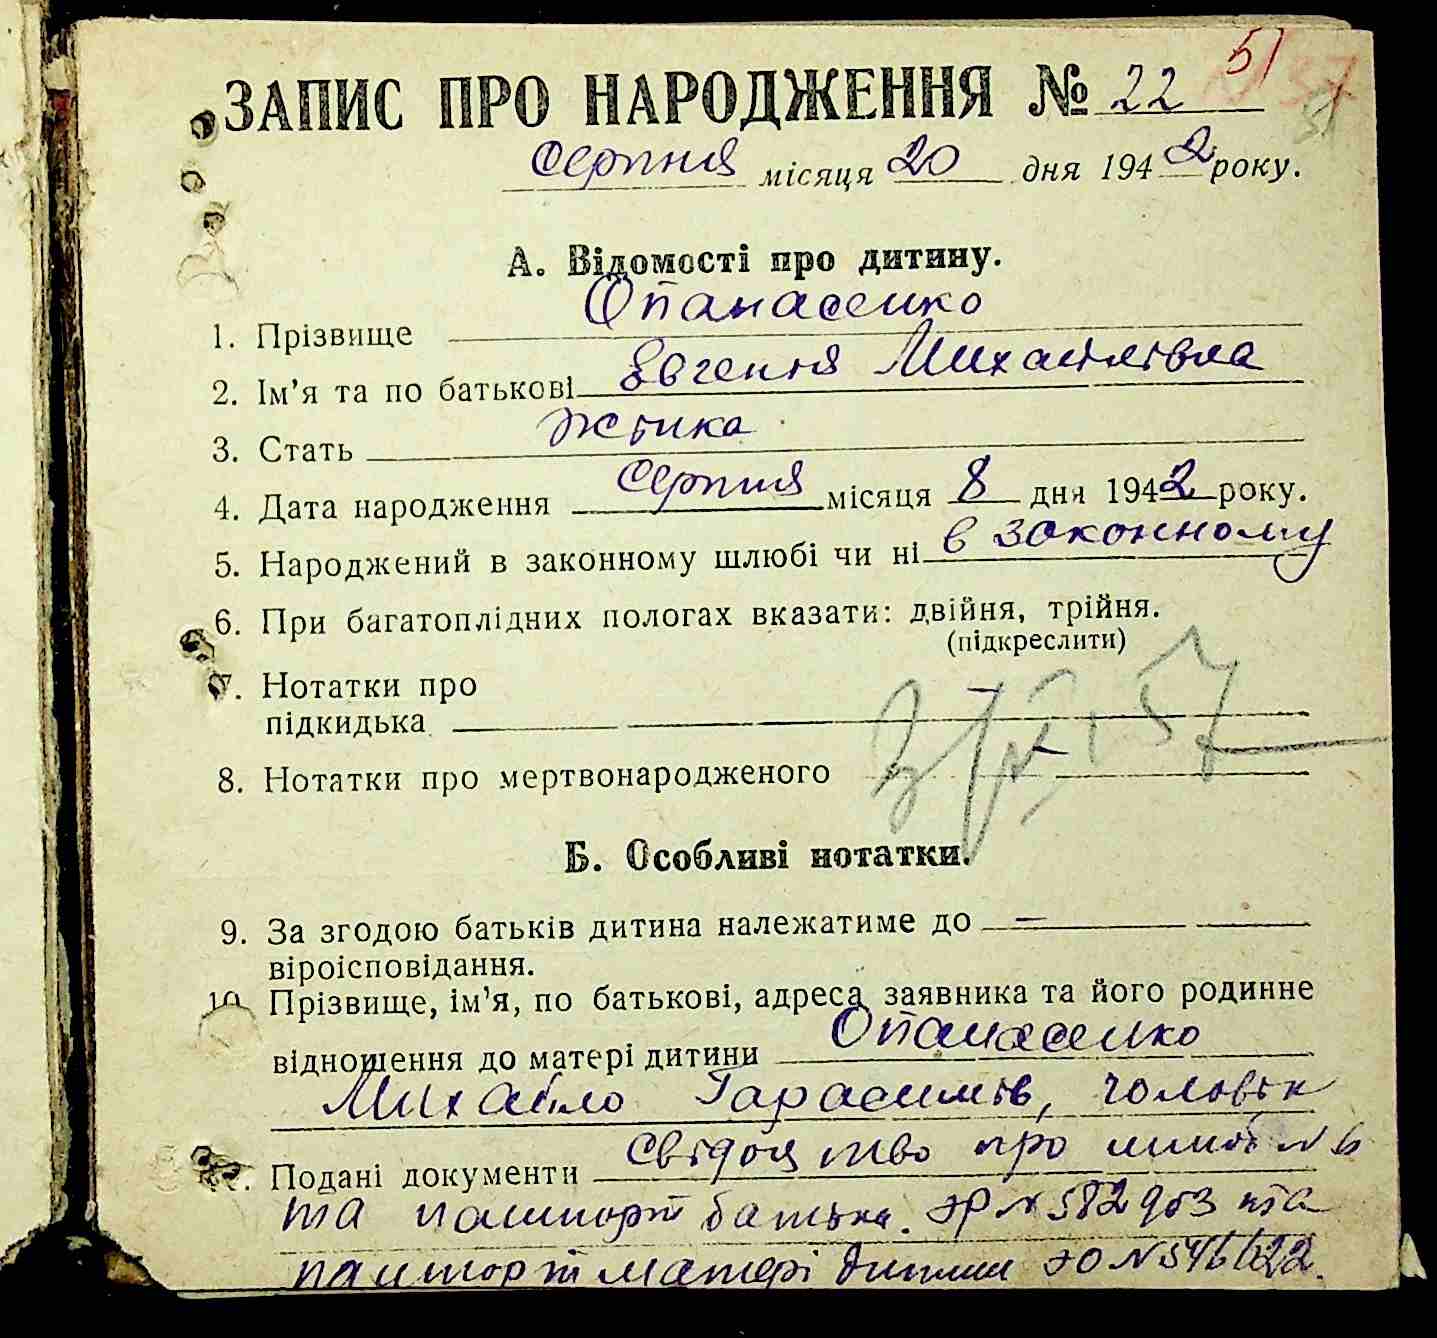 51 37
ЗАПИС ПРО НАРОДЖЕННЯ № 22
51
серпня місяця 20 дня 1942 року.
А. Відомості про дитину.
1. Прізвище Опанасенко
2. Ім'я та по батькові Євгенія Михайлівна
3. Стать жінка
4. Дата народження серпня місяця 8 дня 1942 року.
5. Народжений в законному шлюбі чи ні в законному
6. При багатоплідних пологах вказати: двійня, трійня.
(підкреслити)
7. Нотатки про
підкидька
8. Нотатки про мертвонародженого
Б. Особливі нотатки.
9. За згодою батьків дитина належатиме до —
віроісповідання.
10. Прізвище, ім'я, по батькові, адреса заявника та його родинне
відношення до матері дитини Опанасенко
Михайло Гарасимів, чоловік
Подані документи свідоцтво про шлюб N 6
та пашпорт батька. ЭР N 582953 та
пашпорт матері дитини ЭО N 546622.